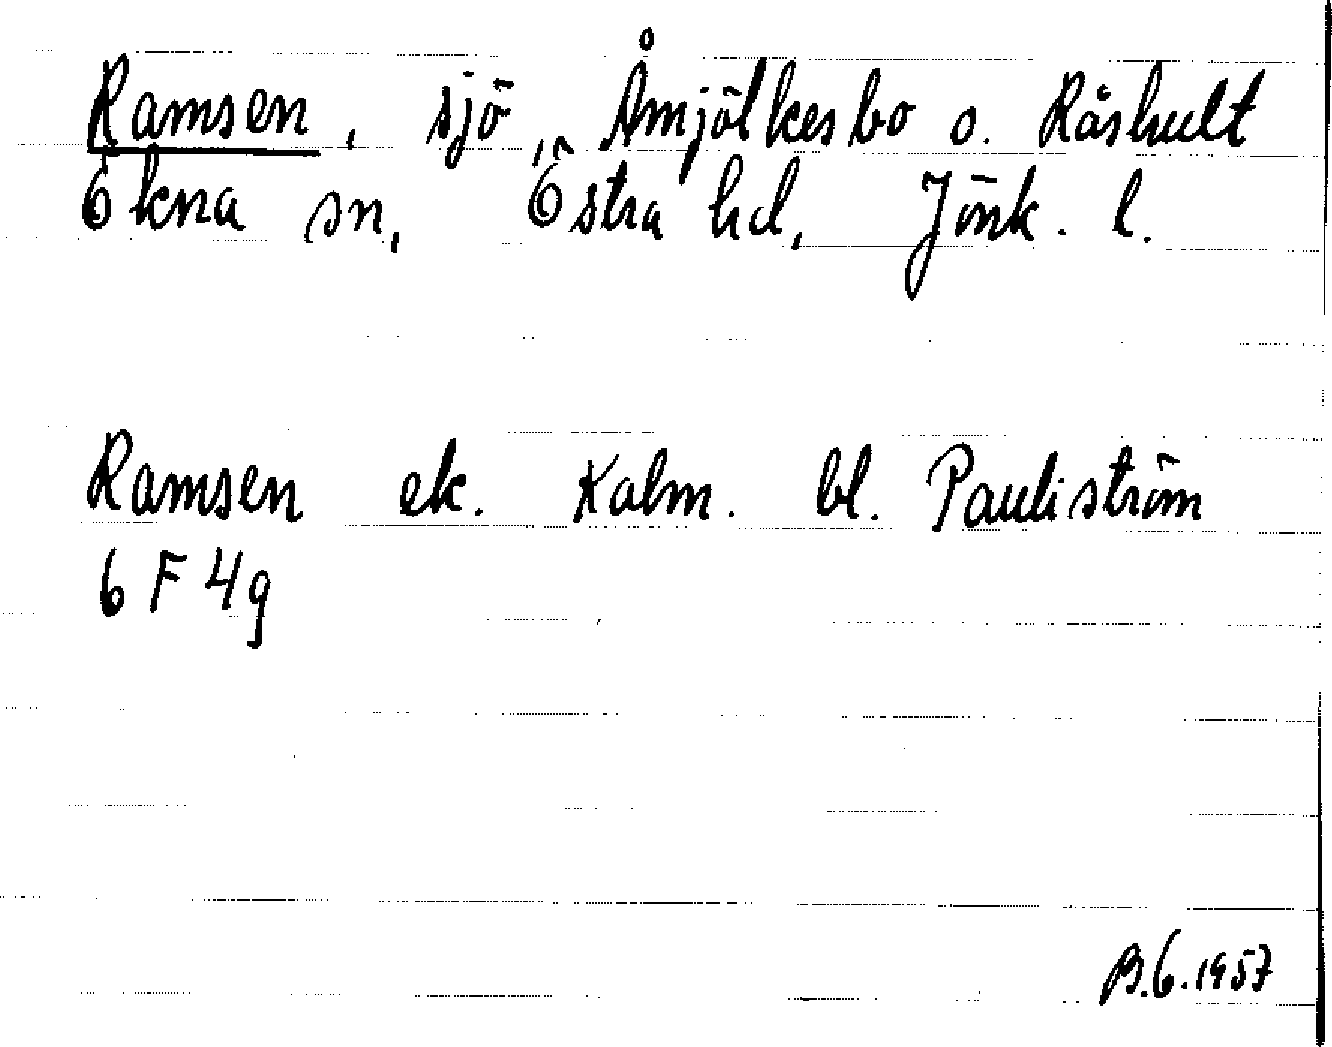 Ramsen, sjö, Åmjölkesbo o. Råshult
Ökna sn, Östra hd, Jönk. l.
Ramsen ek. Kalm. bl. Pauliström
6 F 4g
B.G. 1957